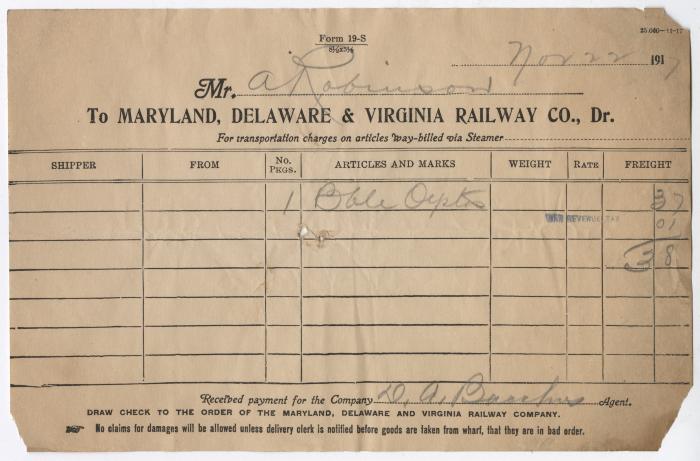 Form 19-S
8½x5½
25,000—11-17
Nov 22 1917
Mr. A Robinson
To MARYLAND, DELAWARE & VIRGINIA RAILWAY CO., Dr.
For transportation charges on articles way-billed via Steamer
SHIPPER FROM No. PKGS. ARTICLES AND MARKS WEIGHT RATE FREIGHT
1 Bble Oysters 37
WAR REVENUE TAX 01
38
Received payment for the Company D. A. Agent.
DRAW CHECK TO THE ORDER OF THE MARYLAND, DELAWARE AND VIRGINIA RAILWAY COMPANY.
☞ No claims for damages will be allowed unless delivery clerk is notified before goods are taken from wharf, that they are in bad order.